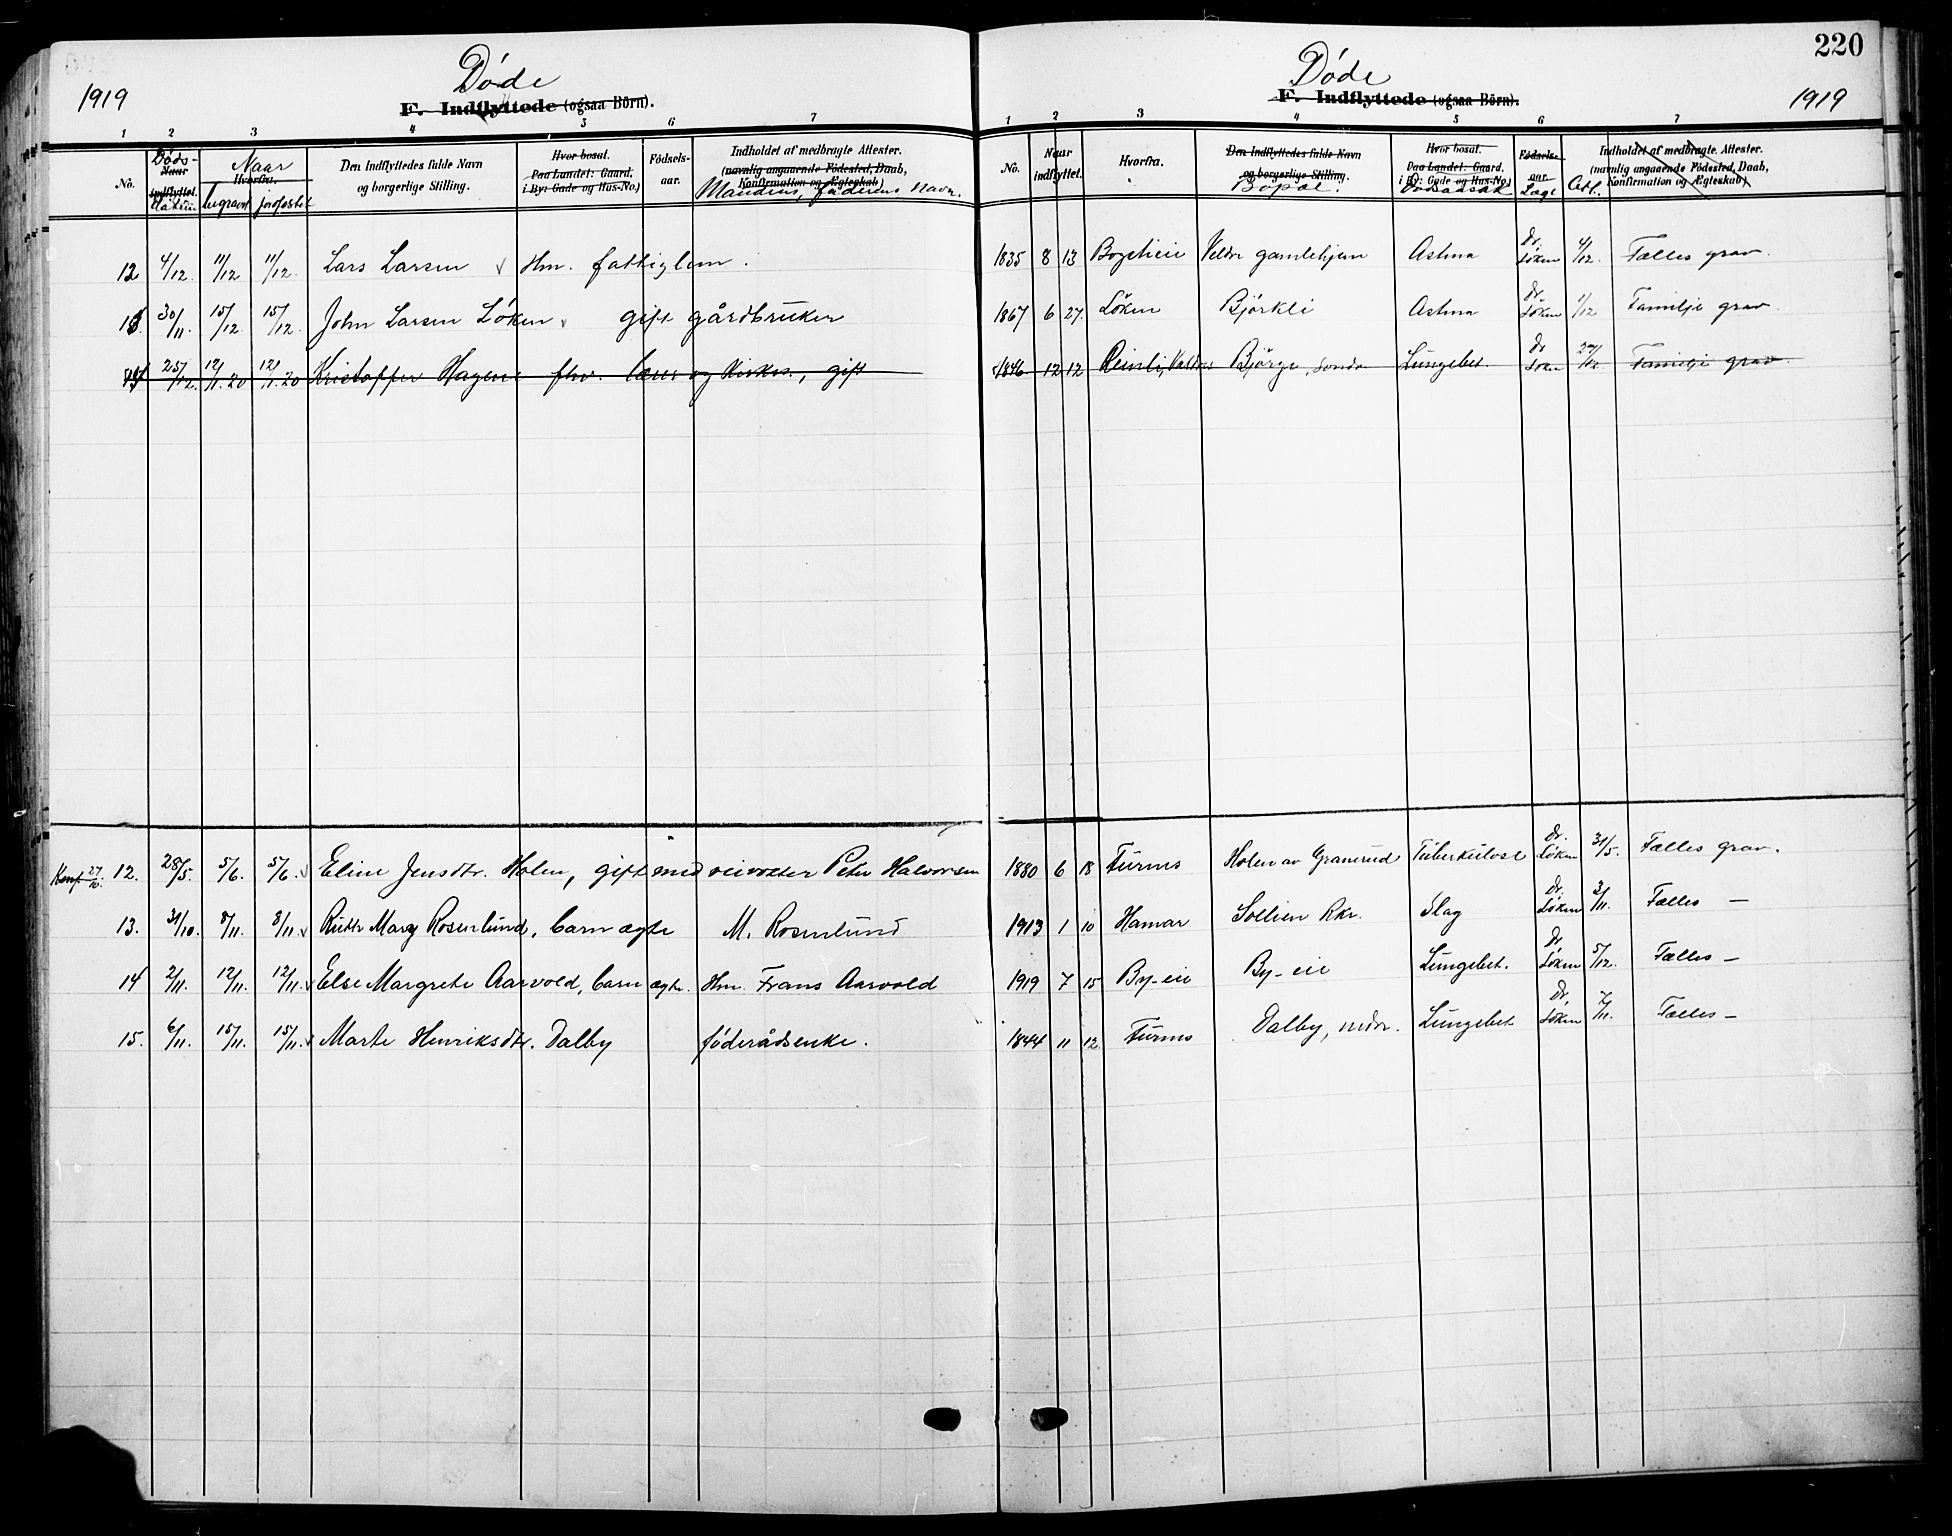 220
Døde
1919
F. Indflyttede (ogsaa Börn).
1 2 3 4 5 6 7
No.
Døds-
Naar indflyttet.
Datum
Naar
Hvorfra.
begravet jordfæstet
Den Indflyttedes fulde Navn og borgerlige Stilling.
Hvor bosat.
Paa Landet: Gaard. i By: Gade og Hus-No.)
Födsels-aar.
Indholdet af medbragte Attester.
(navnlig angaaende Födested, Daab, Konfirmation og Ægteskab)
Mandens, faderens navn.
12 4/12. 11/12 11/12. Lars Larsen Hm. fattiglem.
13. 30/11. 15/12. 15/12. John Larsen Løken gift gårdbruker
14 25/12. 12/1.20 12/1.20 Kristoffer Hagene fhv. lærer og Kirkes., gift
Konf 27/10. 12. 28/5. 5/6. 5/6. Eline Jensdtr. Holen, gift med veivokter Peter Halvorsen
13. 31/10. 8/11. 8/11. Ruth Mary Rosenlund, barn ægte M. Rosenlund
14 2/11. 12/11. 12/11. Else Margrete Aarvold, barn ægte. Hm. Frans Aarvold
15. 6/11. 15/11. 15/11. Marte Henriksdtr. Dalby føderådsenke.
Døde
F. Indflyttede (ogsaa Börn).
1919
1 2 3 4 5 6 7
No.
Naar indflyttet.
Hvorfra.
Den Indflyttedes fulde Navn og borgerlige Stilling.
Bopæl.
Hvor bosat.
Paa Landet: Gaard. i By: Gade og Hus-No.)
Dødsaarsak
Fødsels-aar.
Læge
Att.
Indholdet af medbragte Attester.
(navnlig angaaende Födested, Daab, Konfirmation og Ægteskab)
1835 8 13 Veldre gamlehjem Astma Dr. Løken 4/12. Fælles grav.
1867 6 27. Løken Bjørkli Astma Dr. Løken 1/12 Familje grav.
1846 12 12 Reinli, Valdres Bjørge, søndre Lungebet. Dr Løken Familje grav.
1880 6 18 Furnes Holen av Granerud Tuberkulose Dr. Løken 31/5. Fælles grav.
1913 1 10 Hamar Sollien Rkr. Slag Dr. Løken 3/11. Fælles —
1919 7 15 By-eie By-eie Lungebet. Dr. Løken 5/12. Fælles —
1844 11 12. Furnes Dalby, nedr. Lungebet Dr. Løken 7/11. Fælles —